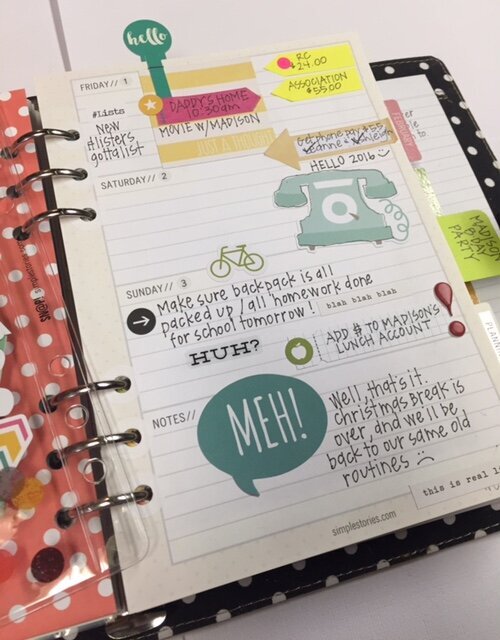 hello
FRIDAY// 1
RC
$24.00
ASSOCIATION
$55.00
DADDY'S HOME
10:30am
#Lists
New
#listers
gotta list
MOVIE W/MADISON
JUST A THOUGHT
Get phone pay $55
HELLO 2016
FEBRUARY
SATURDAY// 2
MADISON
BDAY
PARTY
SUNDAY// 3
Make sure backpack is all
packed up / all homework done
for school tomorrow! blah blah blah
HUH?
ADD $ TO MADISON'S
LUNCH ACCOUNT
NOTES//
MEH!
Well, that's it.
Christmas Break is
over, and we'll be
back to our same old
routines
this is real
simplestories.com
SN@P!